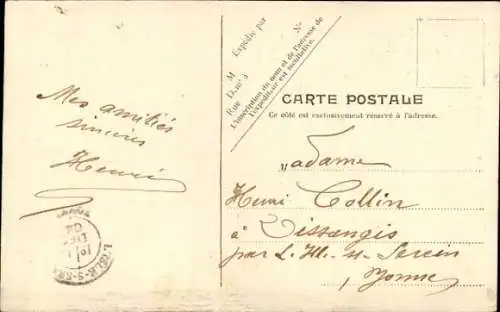 Expédié par
M
D. nº à
Rue
Nº
L'inscription du nom et de l'adresse de
l'expéditeur est facultative.
CARTE POSTALE
Ce côté est exclusivement réservé à l'adresse.
Mes amitiés
sincères
Henri
Madame
Henri Collin
à Dissangis
par L. Hle s. Serein
Yonne
DEC
04